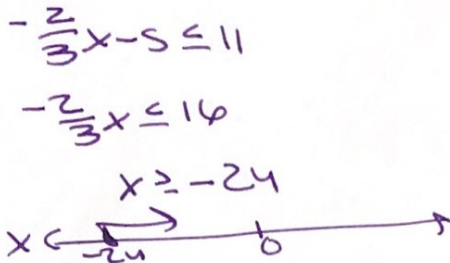 -2/3x-5≤11
-2/3x≤16
x≥-24
x
-24 0